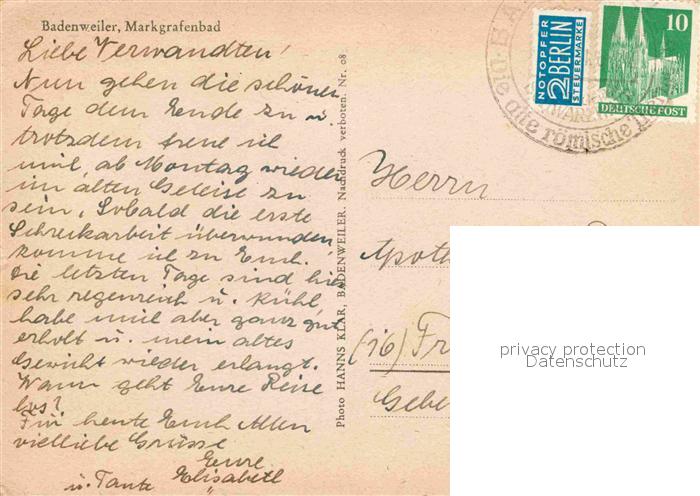 Badenweiler, Markgrafenbad
Liebe Verwandten!
Nun gehen die schönen
Tage dem Ende zu u.
trotzdem freue ich
mich, ab Montag wieder
im alten Geleise zu
sein. Sobald die erste
Schreckarbeit überwunden,
komme ich zu Euch.
Die letzten Tage sind hier
sehr regenreich u. kühl
habe mich aber ganz gut
erholt u. mein altes
Gewicht wieder erlangt.
Wann geht Eure Reise
los?
Für heute Euch Allen
vielliebe Grüsse
Eure
u. Tante Elisabeth
Photo HANNS KLAR, BADENWEILER. Nachdruck verboten. Nr. 08
NOTOPFER
2 BERLIN
STEUERMARKE
10
DEUTSCHE POST
die alte römische
Herrn
Apoth
(16) Fr
Gebe
privacy protection
Datenschutz